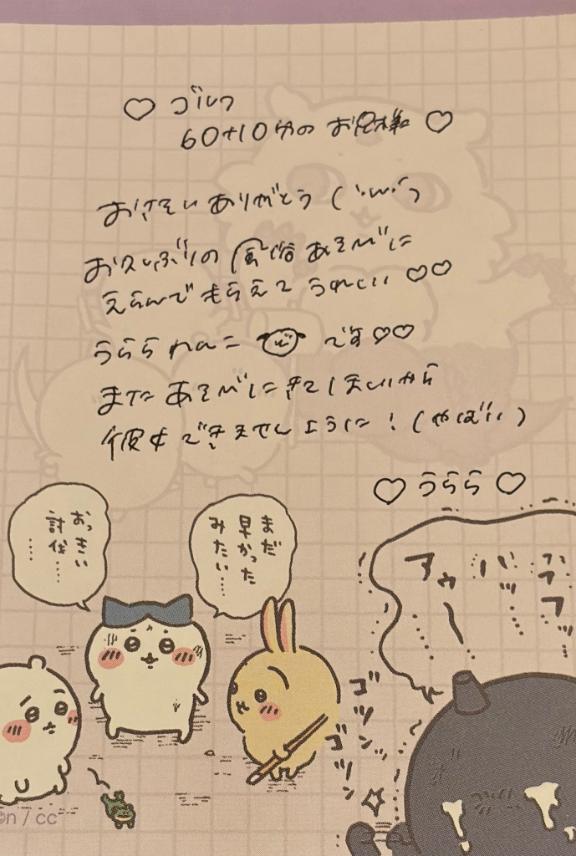 ♡ ゴルフ
60+10分のお客様 ♡
お誘いありがとう ( 'ω' )
お久しぶりの風俗あそびに
えらんでもらえて うれしい ♡♡
うらら わんこ です♡♡
またあそびにきてほしいから
彼女できませんように！(やばい)
♡ うらら ♡
おっきい
討伐……
まだ
早かった
みたい…
ゴッ
ゴッ
n / cc